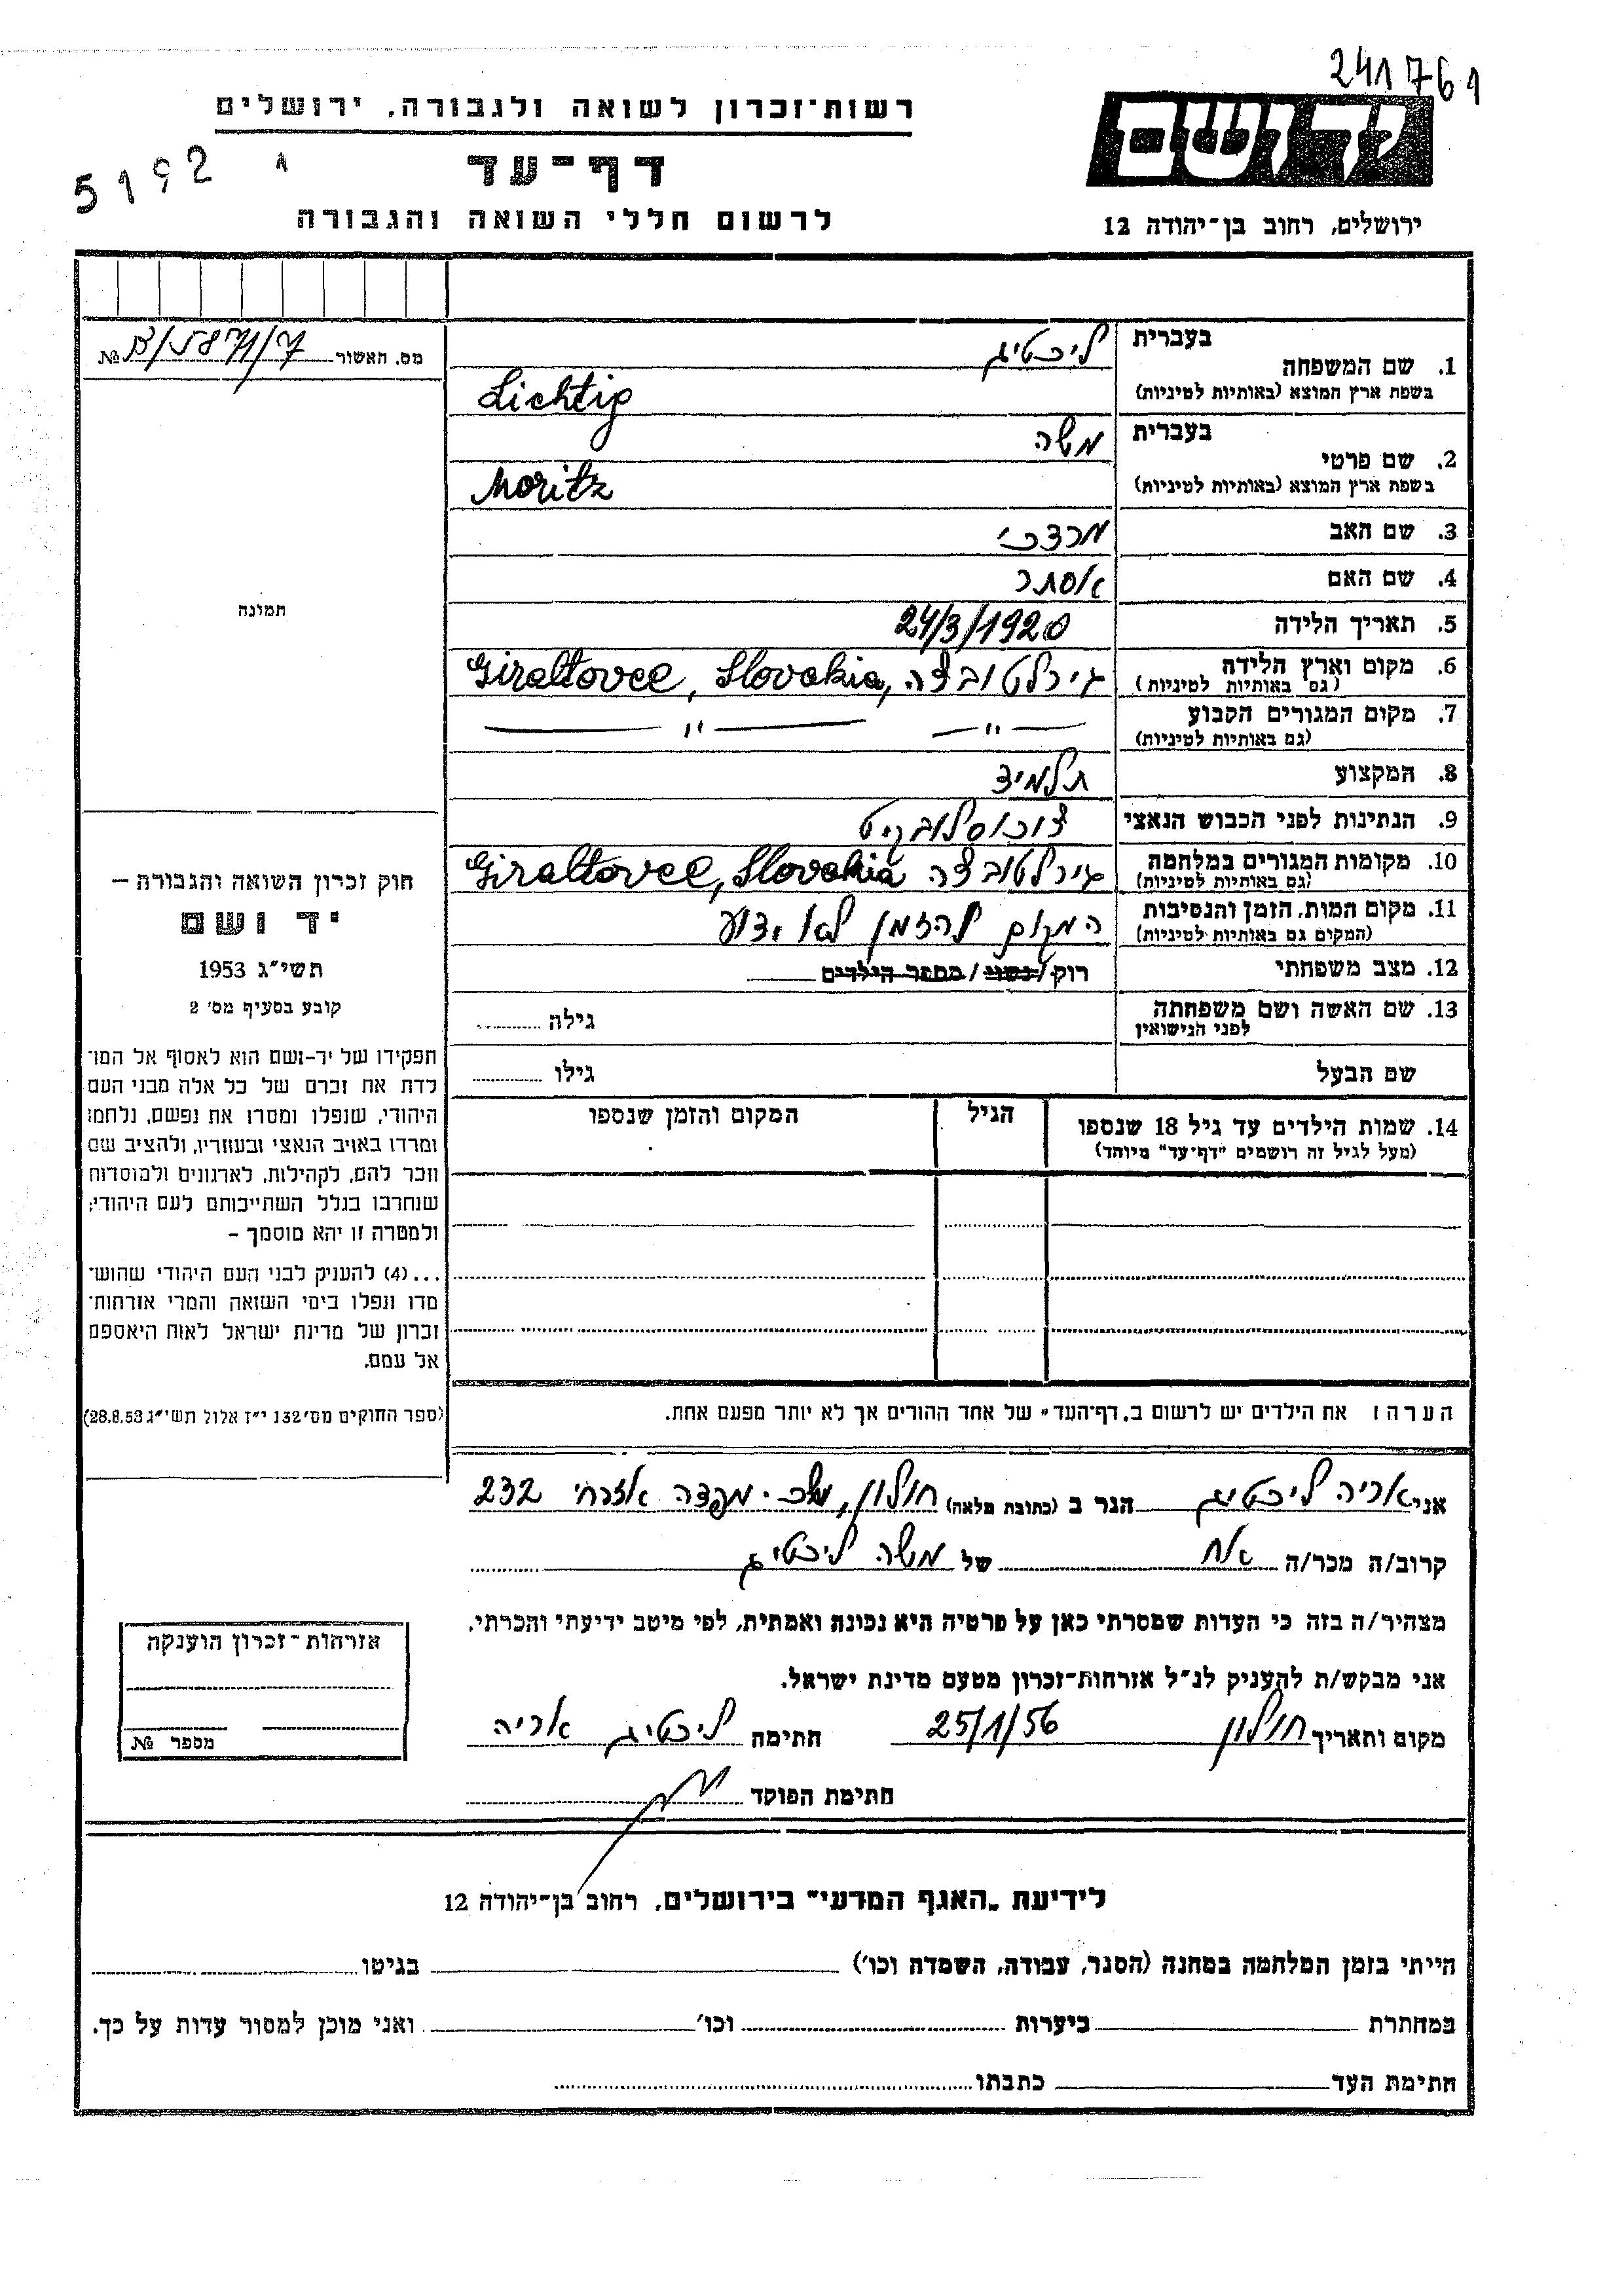 241761
רשות־זכרון לשואה ולגבורה, ירושלים
5192 1
דף־עד
לרשום חללי השואה והגבורה
יד ושם
ירושלים, רחוב בן־יהודה 12
מס. האשור № 
1. שם המשפחה בעברית ליכטיג
בשפת ארץ המוצא (באותיות לטיניות) Lichtig
2. שם פרטי בעברית משה
בשפת ארץ המוצא (באותיות לטיניות) Moritz
3. שם האב מרדכי
4. שם האם אסתר
5. תאריך הלידה 24/3/1920
6. מקום וארץ הלידה גירלטובצה, Giraltovce, Slovakia
(גם באותיות לטיניות)
7. מקום המגורים הקבוע — " — — " —
(גם באותיות לטיניות)
8. המקצוע תלמיד
9. הנתינות לפני הכבוש הנאצי
10. מקומות המגורים במלחמה גירלטובצה Giraltovce, Slovakia
(גם באותיות לטיניות)
11. מקום המות, הזמן והנסיבות המקום והזמן לא ידוע
(המקום גם באותיות לטיניות)
12. מצב משפחתי רוק/נשוי/מספר הילדים
13. שם האשה ושם משפחתה לפני הנישואין גילה
שם הבעל גילו
14. שמות הילדים עד גיל 18 שנספו הגיל המקום והזמן שנספו
(מעל לגיל זה רושמים "דף־עד" מיוחד)
תמונה
חוק זכרון השואה והגבורה –
יד ושם
תשי"ג 1953
קובע בסעיף מס' 2
תפקידו של יד-ושם הוא לאסוף אל המו־
לדת את זכרם של כל אלה מבני העם
היהודי, שנפלו ומסרו את נפשם, נלחמו
ומרדו באויב הנאצי ובעוזריו, ולהציב שם
וזכר להם, לקהילות, לארגונים ולמוסדות
שנחרבו בגלל השתייכותם לעם היהודי;
ולמטרה זו יהא מוסמך –
...(4) להעניק לבני העם היהודי שהוש־
מדו ונפלו בימי השואה והמרי אזרחות־
זכרון של מדינת ישראל לאות היאספם
אל עמם.
(ספר החוקים מס' 132 י"ז אלול תשי"ג 28.8.53)
הערה: את הילדים יש לרשום ב„דף־העד" של אחד ההורים אך לא יותר מפעם אחת.
אני אריה ליכטיג הגר ב (כתובת מלאה) חולון, אזרחי 232
קרוב/ה מכר/ה אח של משה ליכטיג
מצהיר/ה בזה כי העדות שמסרתי כאן על פרטיה היא נכונה ואמתית, לפי מיטב ידיעתי והכרתי.
אני מבקש/ת להעניק לנ"ל אזרחות-זכרון מטעם מדינת ישראל.
מקום ותאריך חולון 25/1/56 חתימה ליכטיג אריה
חתימת הפוקד
אזרחות-זכרון הוענקה
מספר №
לידיעת „האגף המדעי" בירושלים, רחוב בן־יהודה 12
הייתי בזמן המלחמה במחנה (הסגר, עבודה, השמדה וכו') בגיטו
במחתרת ביערות וכו' ואני מוכן למסור עדות על כך.
חתימת העד כתבתו